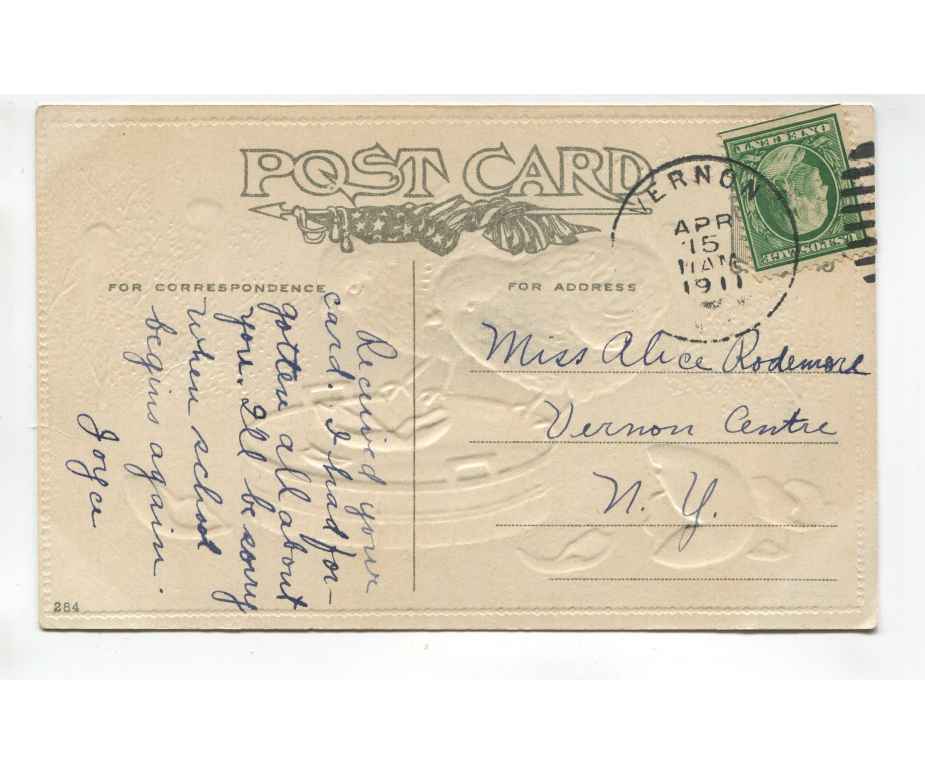 POST CARD
VERNON
APR
15
11 AM
1911
ONE CENT
U.S. POSTAGE
FOR CORRESPONDENCE
FOR ADDRESS
Received your
card. I had for-
gotten all about
you. I'll be sorry
when school
begins again.
Joyce
Miss Alice Rodemore
Vernon Centre
N. Y.
284